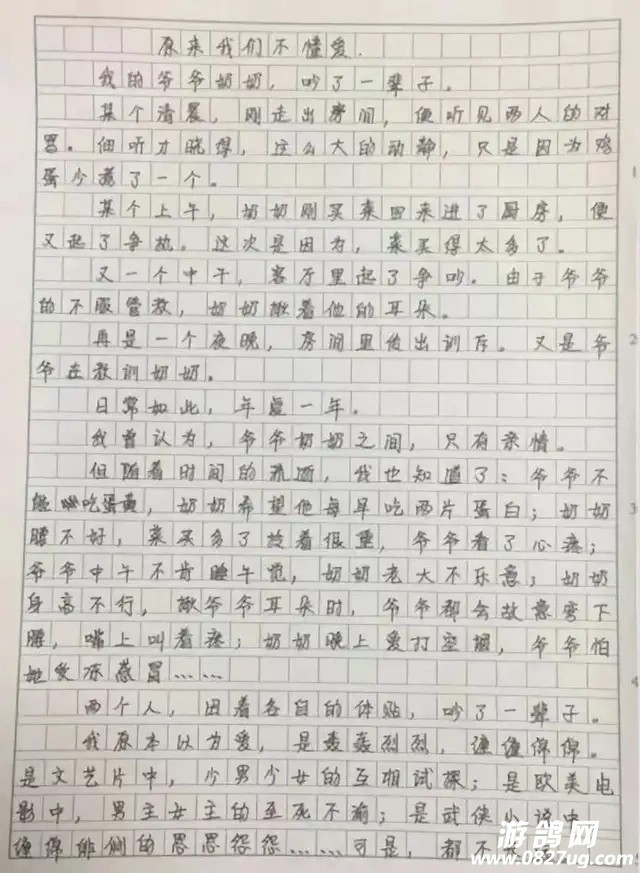 原来我们不懂爱.
我的爷爷奶奶，吵了一辈子。
某个清晨，刚走出房间，便听见两人的对
骂。细听才晓得，这么大的动静，只是因为鸡
蛋少煮了一个。
某个上午，奶奶刚买菜回来进了厨房，便
又起了争执。这次是因为，菜买得太多了。
又一个中午，客厅里起了争吵。由于爷爷
的不服管教，奶奶揪着他的耳朵。
再是一个夜晚，房间里传出训斥。又是爷
爷在教训奶奶。
日常如此，年复一年。
我曾认为，爷爷奶奶之间，只有亲情。
但随着时间的流逝，我也知道了：爷爷不
能吃蛋黄，奶奶希望他每早吃两片蛋白；奶奶
腰不好，菜买多了拎着很重，爷爷看了心疼；
爷爷中午不肯睡午觉，奶奶老大不乐意；奶奶
身高不行，揪爷爷耳朵时，爷爷都会故意弯下
腰，嘴上叫着疼；奶奶晚上爱打空调，爷爷怕
她受冻感冒……
两个人，因着各自的体贴，吵了一辈子。
我原本以为爱，是轰轰烈烈，缠缠绵绵。
是文艺片中，少男少女的互相试探；是欧美电
影中，男主女主的至死不渝；是武侠小说中
缠绵悱恻的恩恩怨怨……可是，都不
1
2
3
4
游鸽网
www.0827ug.com